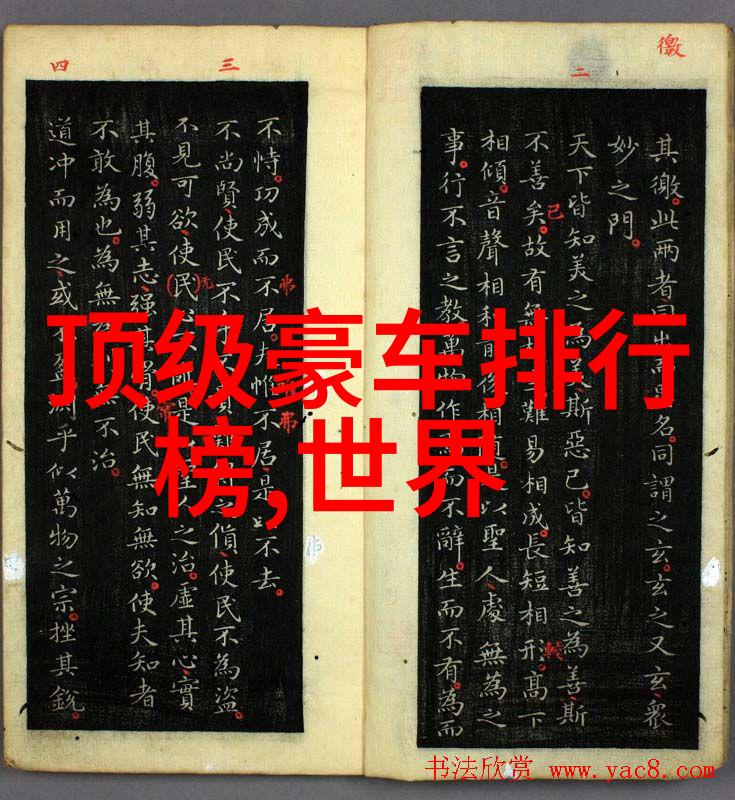 顶级豪车排行
榜,世界
徼
二
其徼。此两者。同出名。同謂之玄。玄之又玄。眾
妙之門。
天下皆知美之為美斯惡已。皆知善之為善斯
已
不善矣。故有無難易相成。長短相形。高下
較
相傾。音聲相和是以聖人處無為之
事。行不言之教。萬物作而不辭。生而不有。為而
三
四
不恃。功成而不居。夫惟不居。是以不去。
弗
弗
不尚賢。使民不之貨。使民不為盜。
不見可欲。使(民)是聖人之治。虛其心。實
无
其腹。弱其志。強其骨。使民無知無欲。使夫知者
常
不敢為也。為無不治。
道冲而用之。或盈渊乎似萬物之宗。挫其銳。
书法欣赏 www.yac8.com